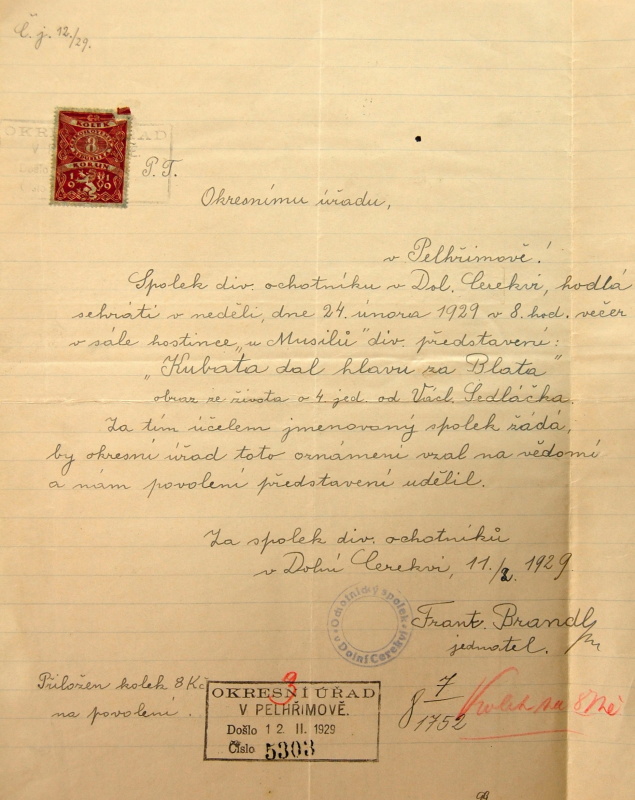 Č. j. 12./29.
KOLEK
8
KORUN
1919
OKRESNÍ ÚŘAD
Došlo
P. T.
Okresnímu úřadu,
v Pelhřimově!
Spolek div. ochotníku v Dol. Cerekvi, hodlá
sehráti v neděli, dne 24. února 1929 v 8. hod. večer
v sále hostince „u Musilů" div. představení:
„Kubata dal hlavu za Blata"
obraz ze života o 4. jed. od Václ. Sedláčka.
Za tím účelem jmenovaný spolek žádá,
by okresní úřad toto oznámení vzal na vědomí
a nám povolení představení udělil.
Za spolek div. ochotníků
v Dolní Cerekvi, 11./2. 1929
Ochotnický spolek
v Dolní Cerekvi
Frant. Brandl
jednatel.
Přiložen kolek 8 Kč
na povolení.
3
OKRESNÍ ÚŘAD
V PELHŘIMOVĚ.
Došlo 12. II. 1929
Číslo 5303
8 7/1752
Kolek za 8 Kč